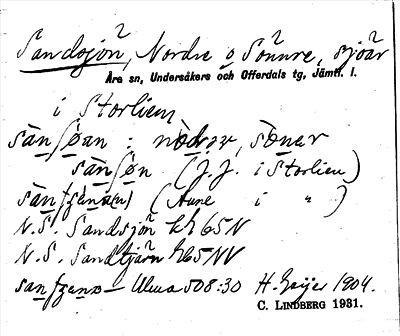 Sandsjön, Nordre o Sönnre, sjöar
Åre sn, Undersåkers och Offerdals tg, Jämtl. l.
i Storlien
sàn søan : nødrər, sønər
sàn søn (J. J. i Storlien)
(Aune i " )
N. S. Sandsjön h 65 N
N. S. Sandtjärn h65 NV
Ulma 508:30 H. Geijer 1904.
C. LINDBERG 1931.